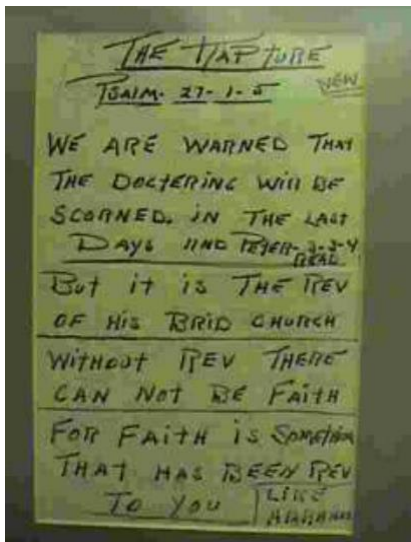 THE RAPTURE
NEW
PSAlM- 27-1-5
WE ARE WARNED THAT
THE DOCTERING WILL BE
SCORNED. IN THE LAST
DAYS IIND PETER-3-3-4
READ
But it is THE REV
OF HIS BRID CHURCH
WITHOUT REV THERE
CAN NOT BE FAITH
FOR FAITH is SOMETHIN
THAT HAS BEEN REV
TO YOU
LIKE
ABRAHAM